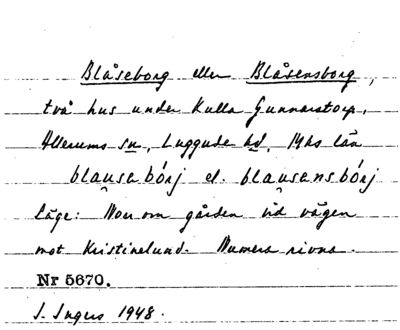 Blåseborg eller Blåsensborg,
två hus under Kulla Gunnarstorp,
Allerums sn, Luggude hd, Mhs län
blau̯sabórj el. blau̯sansbórj
Läge: Nov om gården vid vägen
mot Kristinelund. Numera rivna.
Nr 5670.
I. Ingers 1948.